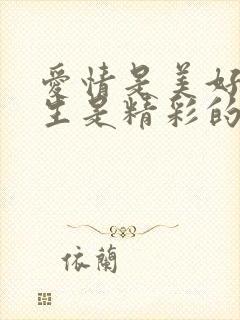 愛情是美好
生是精彩的
依蘭